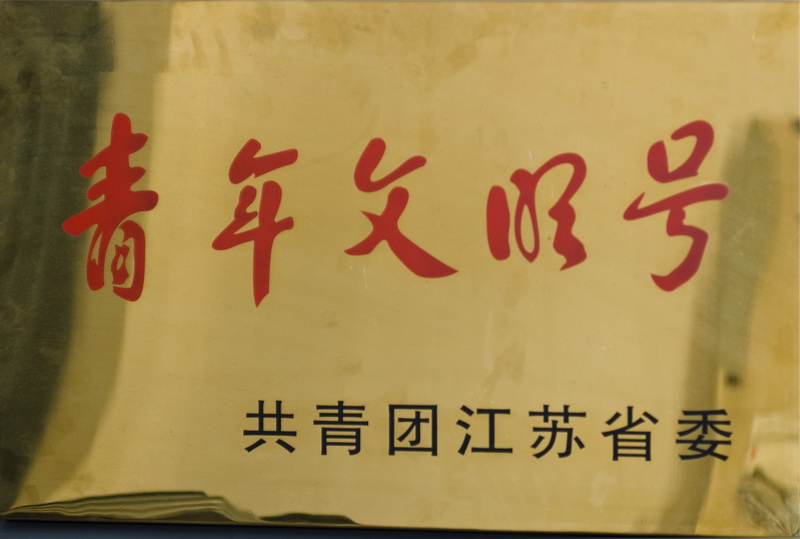 青年文明号
共青团江苏省委